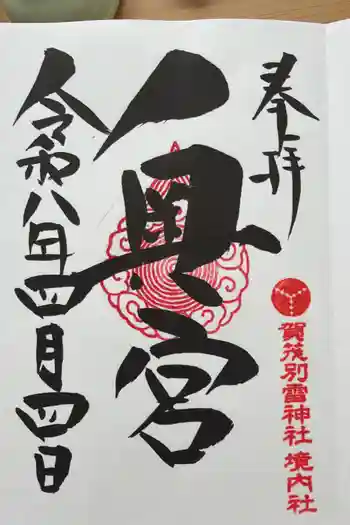 奉拝
奥宮
令和八年四月四日
賀茂別雷神社 境内社